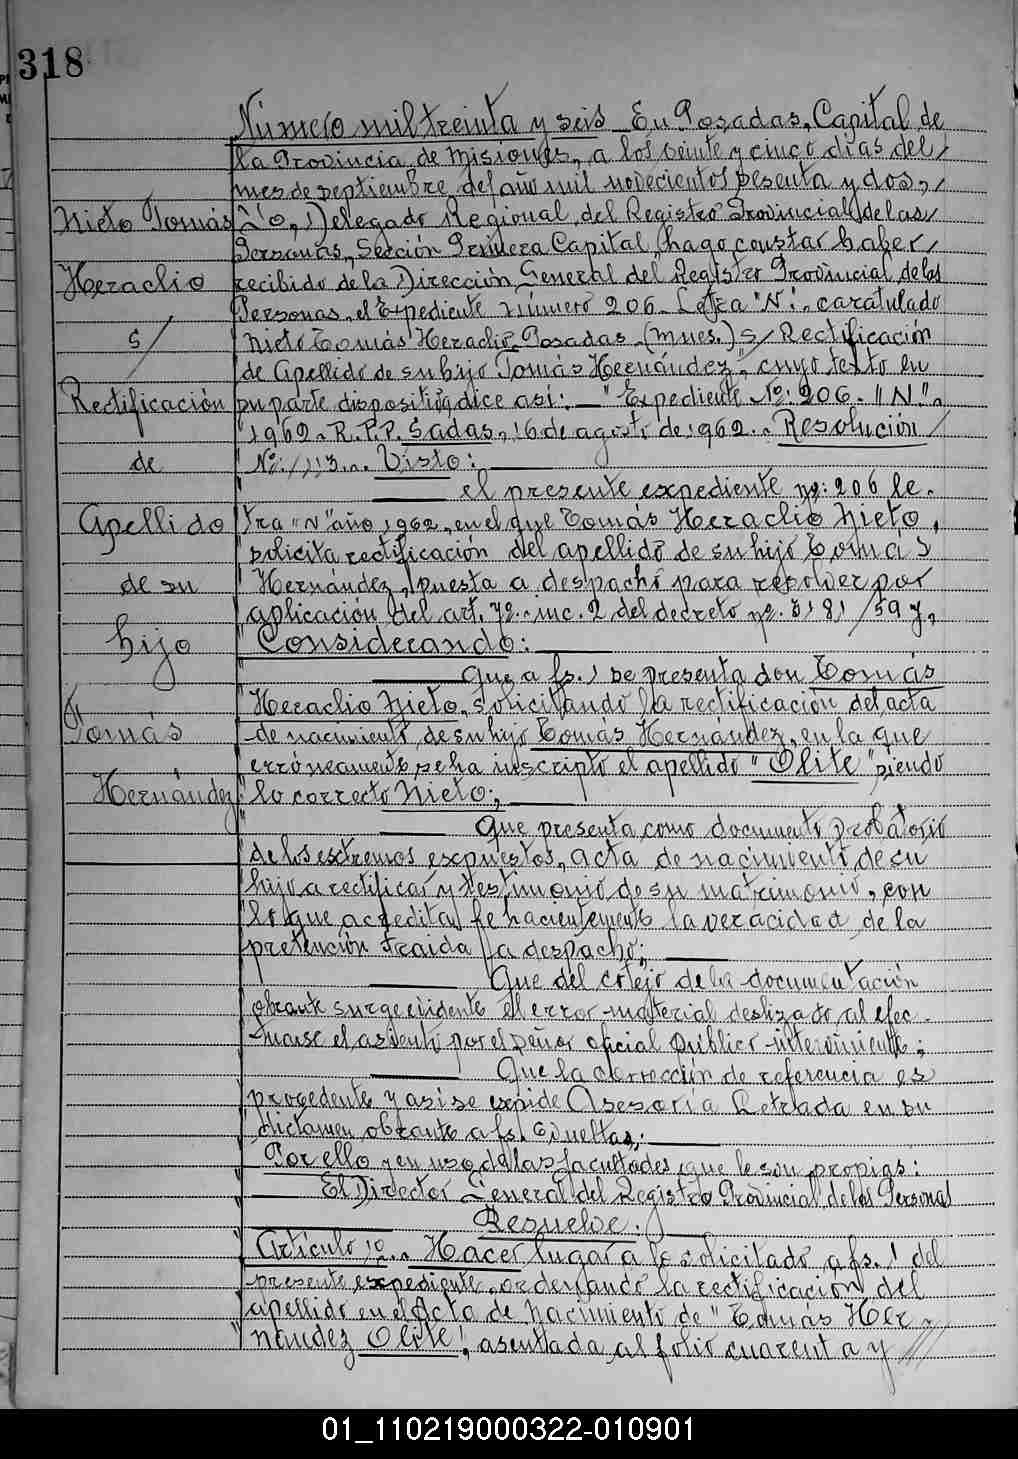 318
Número mil treinta y seis En Posadas, Capital de
la Provincia de Misiones, a los veinte y cinco días del
mes de septiembre del año mil novecientos sesenta y dos,
Nieto Tomás
Yo, Delegado Regional del Registro Provincial de las
Personas, Sección Primera Capital, hago constar haber
Heraclio
recibido de la Dirección General del Registro Provincial de las
Personas, el Expediente número 206 Letra "N", caratulado
S/
Nieto Tomás Heraclio Posadas (Mnes.) S/ Rectificación
de apellido de su hijo Tomás Hernández", cuyo texto en
Rectificación
su parte dispositiva dice así: "Expediente Nº: 206. "N".
1962. R.P.P. Sadas, 16 de agosto de 1962. Resolución
de
Nº: 113. Visto:
el presente expediente nº: 206 le-
Apellido
tra "N" año 1962, en el que Tomás Heraclio Nieto,
solicita rectificación del apellido de su hijo Tomás
de su
Hernández, puesta a despacho para resolver por
aplicación del art. 72. inc. 2 del decreto nº. 3181/59 y,
hijo
Considerando:
Que a fs. 1 se presenta don Tomás
Heraclio Nieto, solicitando la rectificación del acta
Tomás
de nacimiento de su hijo Tomás Hernández, en la que
erróneamente se ha inscripto el apellido "Olite" siendo
Hernández
lo correcto Nieto;
Que presenta como documento probatorio
de los extremos expuestos, acta de nacimiento de su
hijo a rectificar y testimonio de su matrimonio, con
lo que acredita fehacientemente la veracidad de la
pretención traida a despacho;
Que del cotejo de la documentación
obrante surge evidente el error material deslizado al efec-
tuarse el asiento por el señor oficial público interviniente;
Que la corrección de referencia es
procedente y así se expide Asesoría Letrada en su
dictamen obrante a fs. vueltas;
Por ello y en uso de las facultades que le son propias:
El Director General del Registro Provincial de las Personas
Resuelve:
Artículo 1º.. Hacer lugar a lo solicitado a fs. 1 del
presente expediente, ordenando la rectificación del
apellido en el Acta de Nacimiento de "Tomás Her-
nández Olite", asentada al folio cuarenta y
01_110219000322-010901